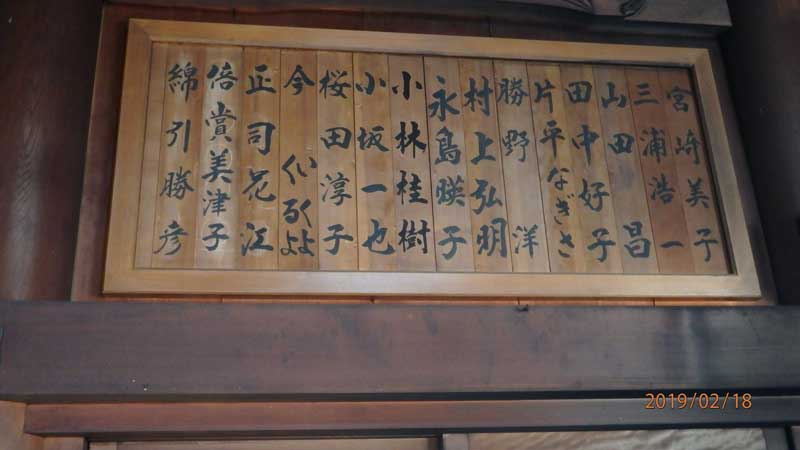 宮崎美子
三浦浩一
山田昌
田中好子
片平なぎさ
勝野洋
村上弘明
永島暎子
小林桂樹
小坂一也
桜田淳子
今いくよくるよ
正司花江
倍賞美津子
綿引勝彦
2019/02/18